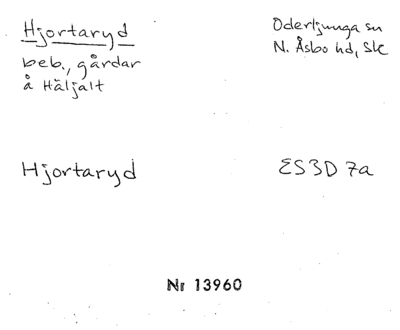 Hjortaryd
Oderljunga sn
N. Åsbo hd, Sk
beb., gårdar
å Häljalt
Hjortaryd
ES3D 7a
Nr 13960